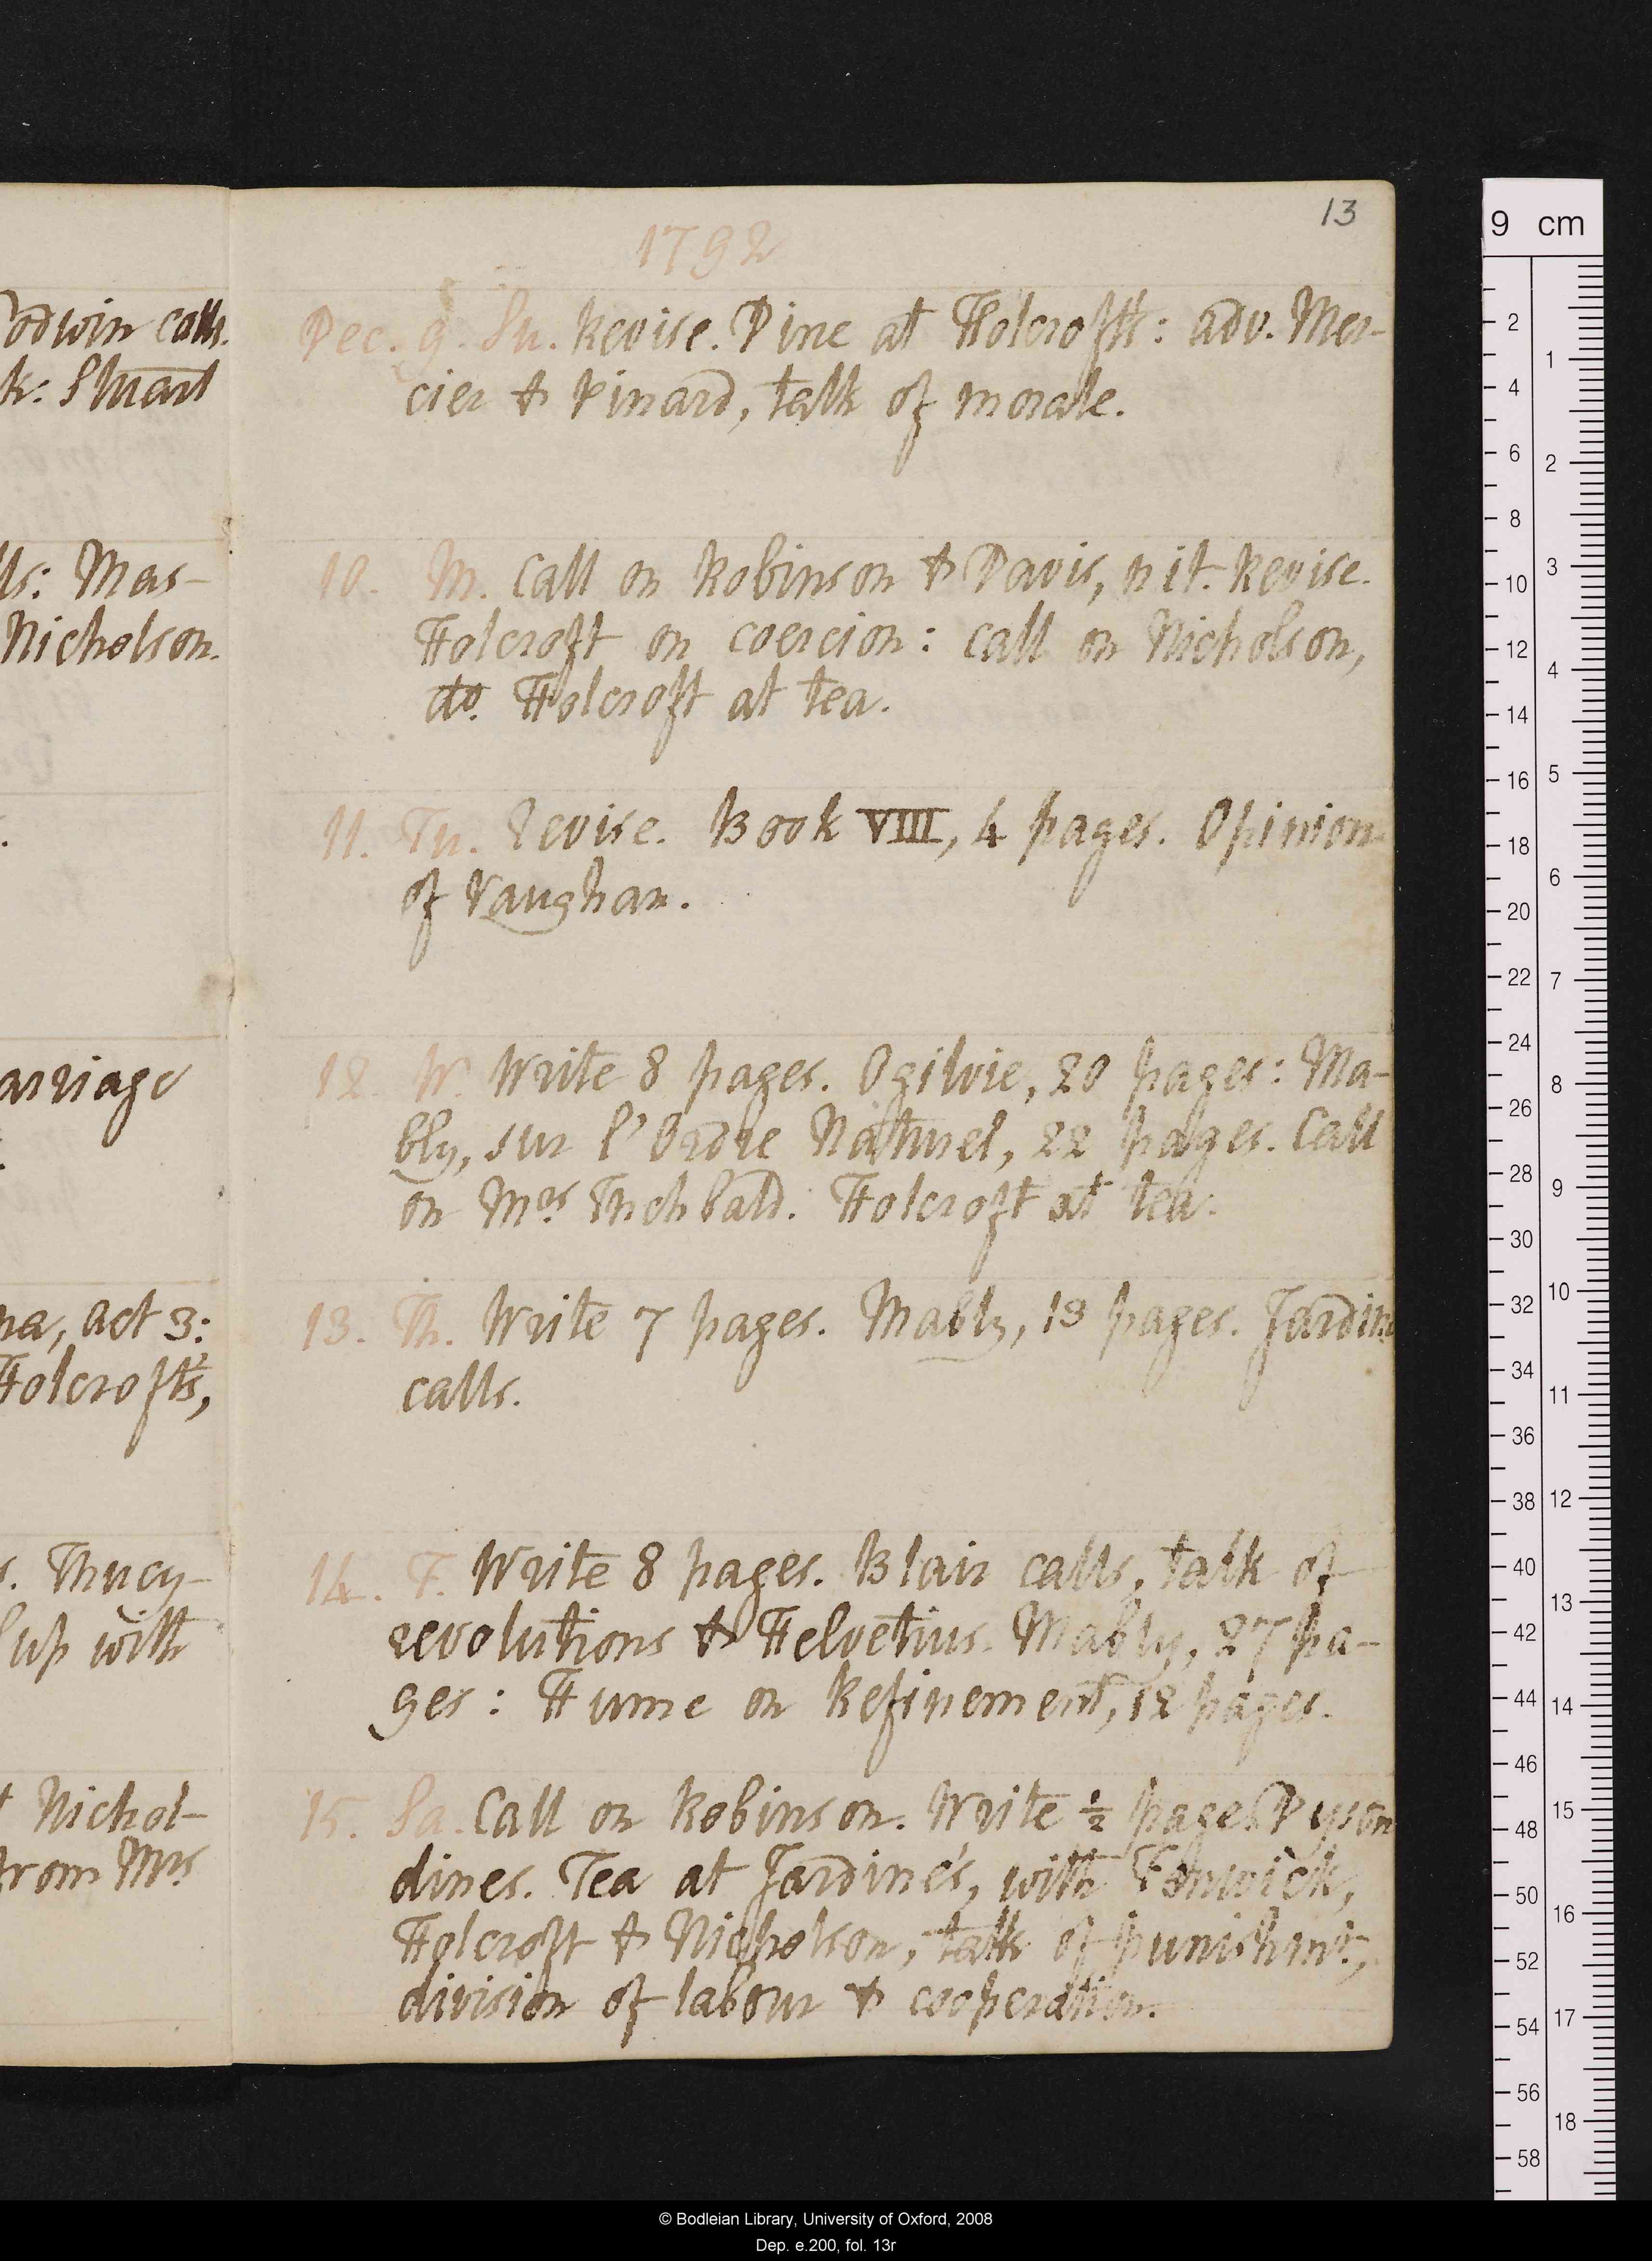 odwin calls.
k: Stuart
lls: Mas-
Nicholson.
arriage
na, act 3:
Holcroft's,
s. Thucy-
Sup with
t Nichol-
from Mrs
13
1792
Dec. 9. Su. Revise. Dine at Holcroft's: adv. Mer-
cier & Pinard, talk of morale.
10. M. Call on Robinson & Davis, nit. Revise.
Holcroft on coercion: call on Nicholson,
do. Holcroft at tea.
11. Tu. Revise. Book VIII, 4 pages. Opinion
of Vaughan.
12. W. Write 8 pages. Ogilvie, 20 pages: Ma-
bly, sur l'Ordre Naturel, 22 pages. Call
on Mrs Inchbald. Holcroft at tea.
13. Th. Write 7 pages. Mably, 13 pages. Jardine
calls.
14. F. Write 8 pages. Blair calls, talk of
revolutions & Helvetius. Mably, 27 pa-
ges: Hume on Refinement, 12 pages.
15. Sa. Call on Robinson. Write ½ page. Dyson
dines. Tea at Jardine's, with Fenwick,
Holcroft & Nicholson, talk of punishmt,
division of labour & cooperation.
9 cm
2
4
6
8
10
12
14
16
18
20
22
24
26
28
30
32
34
36
38
40
42
44
46
48
50
52
54
56
58
1
2
3
4
5
6
7
8
9
10
11
12
13
14
15
16
17
18
© Bodleian Library, University of Oxford, 2008
Dep. e.200, fol. 13r